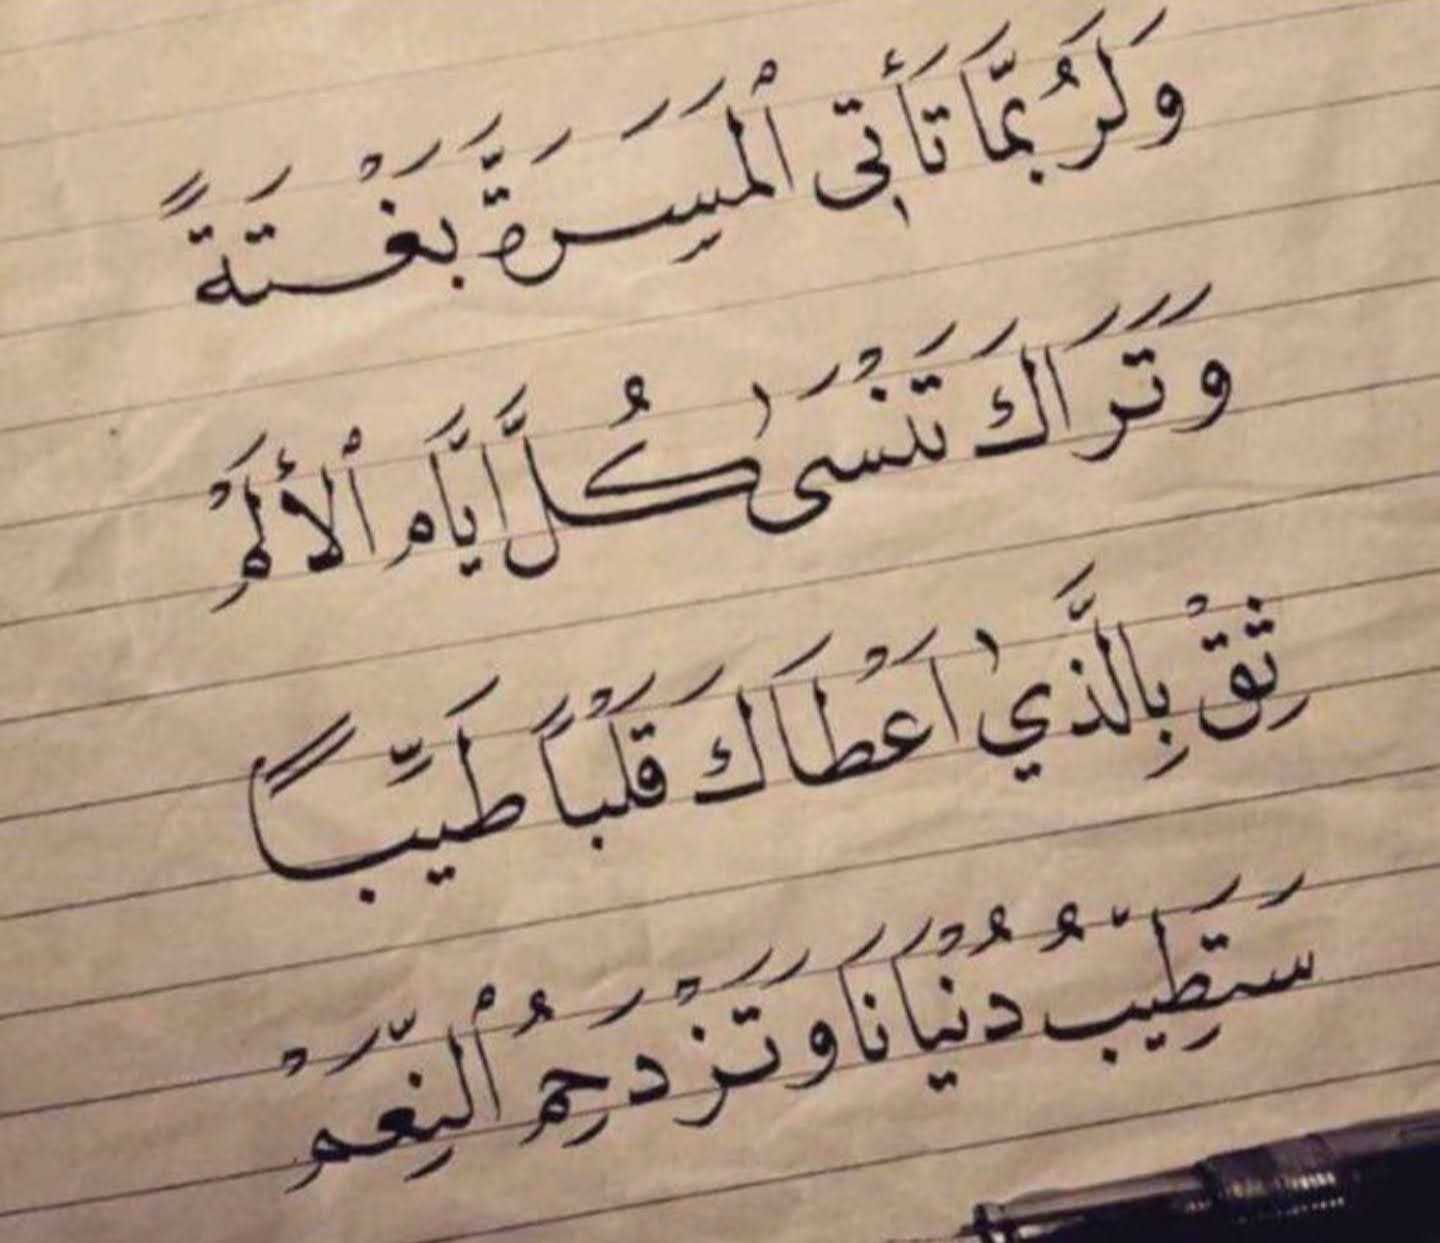 وَلَرُبَّمَا تَأْتِي ٱلْمَسَرَّةُ بَغْتَةً
وَتَرَاكَ تَنْسَىٰ كُلَّ أَيَّامِ ٱلْأَلَمْ
ثِقْ بِالَّذِي أَعْطَاكَ قَلْبًا طَيِّبًا
سَتَطِيبُ دُنْيَانَا وَتَزْدَحِمُ ٱلنِّعَمْ